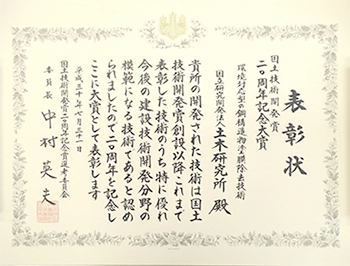 表彰状
国土技術開発賞
二〇周年記念大賞
環境対応型の鋼構造物塗膜除去技術
国立研究開発法人土木研究所 殿
貴所の開発された技術は国土
技術開発賞創設以降これまで
表彰した技術のうち特に優れ
今後の建設技術開発分野の
模範になる技術であると認め
られましたので二〇周年を記念し
ここに大賞として表彰します
平成三十年七月三十一日
国土技術開発賞二〇周年記念賞選考委員会
委員長 中村英夫